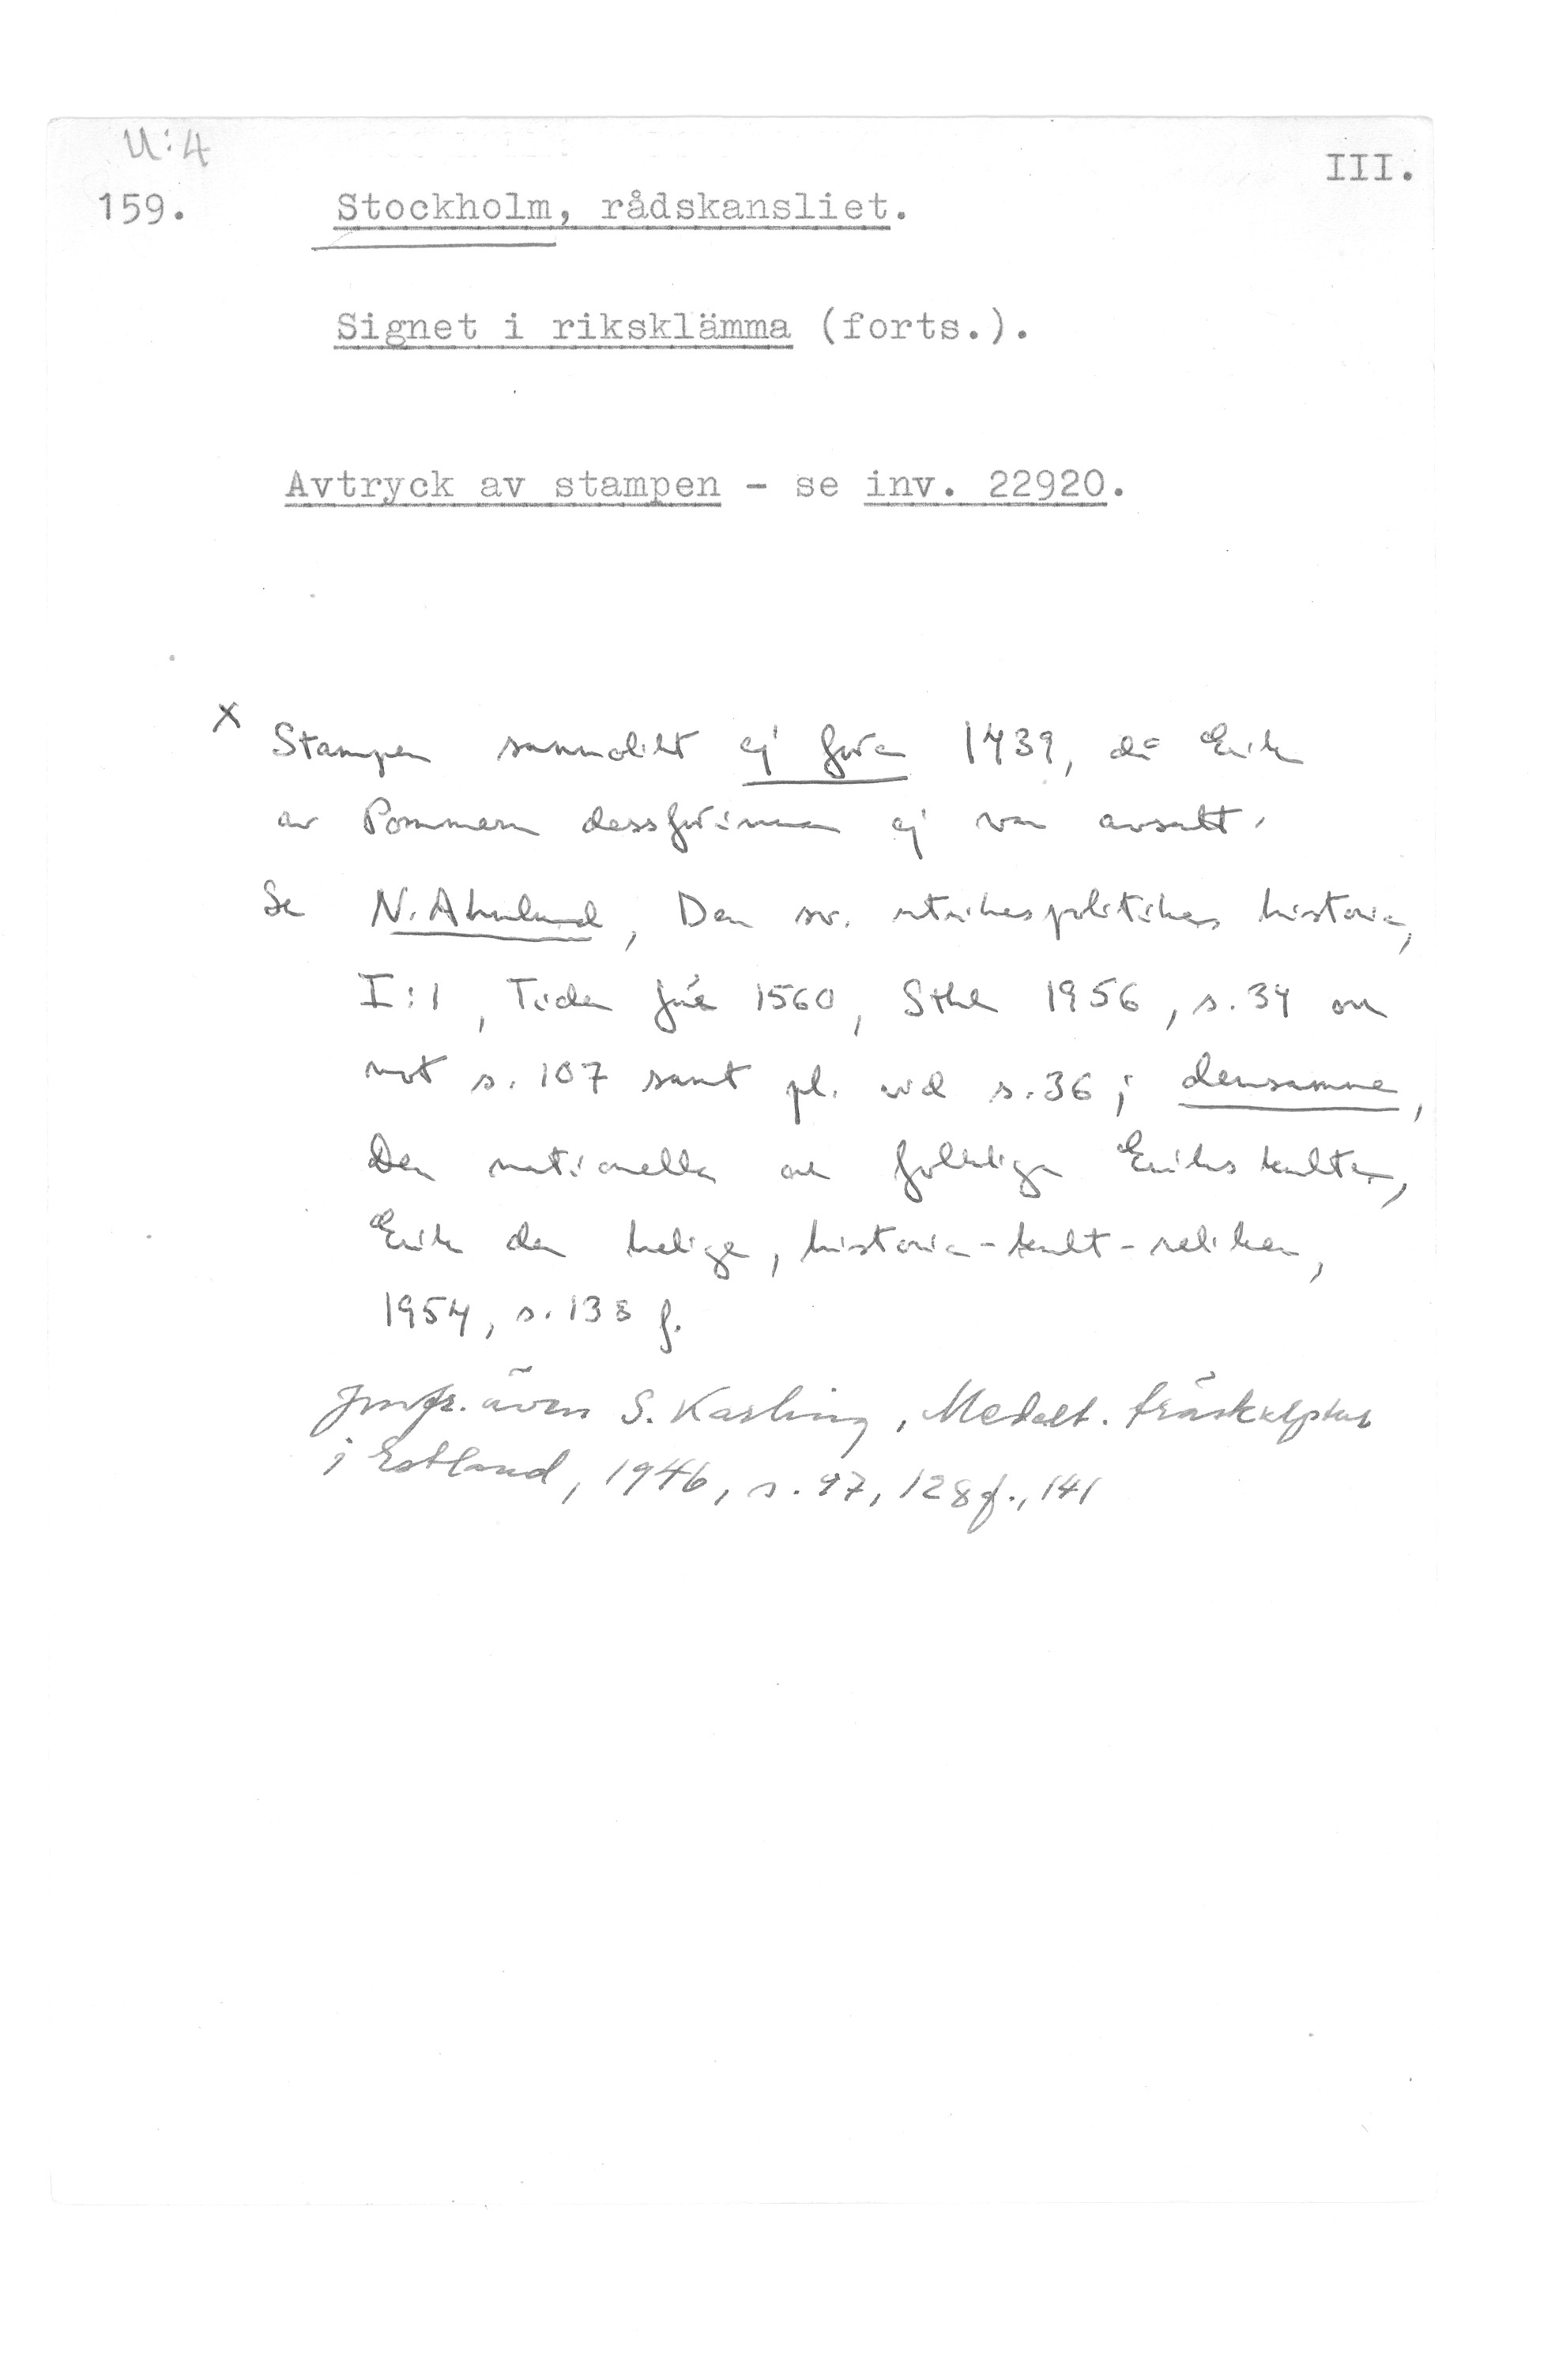 U:4
III.
159. Stockholm, rådskansliet.
Signet i riksklämma (forts.).
Avtryck av stampen - se inv. 22920.
x Stampen sannolikt ej före 1439, då Erik
av Pommern dessförinnan ej var avsatt.
Se N. Ahnlund, Den sv. utrikespolitikens historia,
I:1, Tiden före 1560, Sthlm 1956, s. 34 och
not s. 107 samt pl. vid s. 36; densamme,
Den nationella och folkliga Erikskulten,
Erik den helige, historia-kult-reliker,
1954, s. 138 f.
Jmfr. även S. Karling, Medelt. träskulptur
i Estland, 1946, s. 97, 128 f., 141